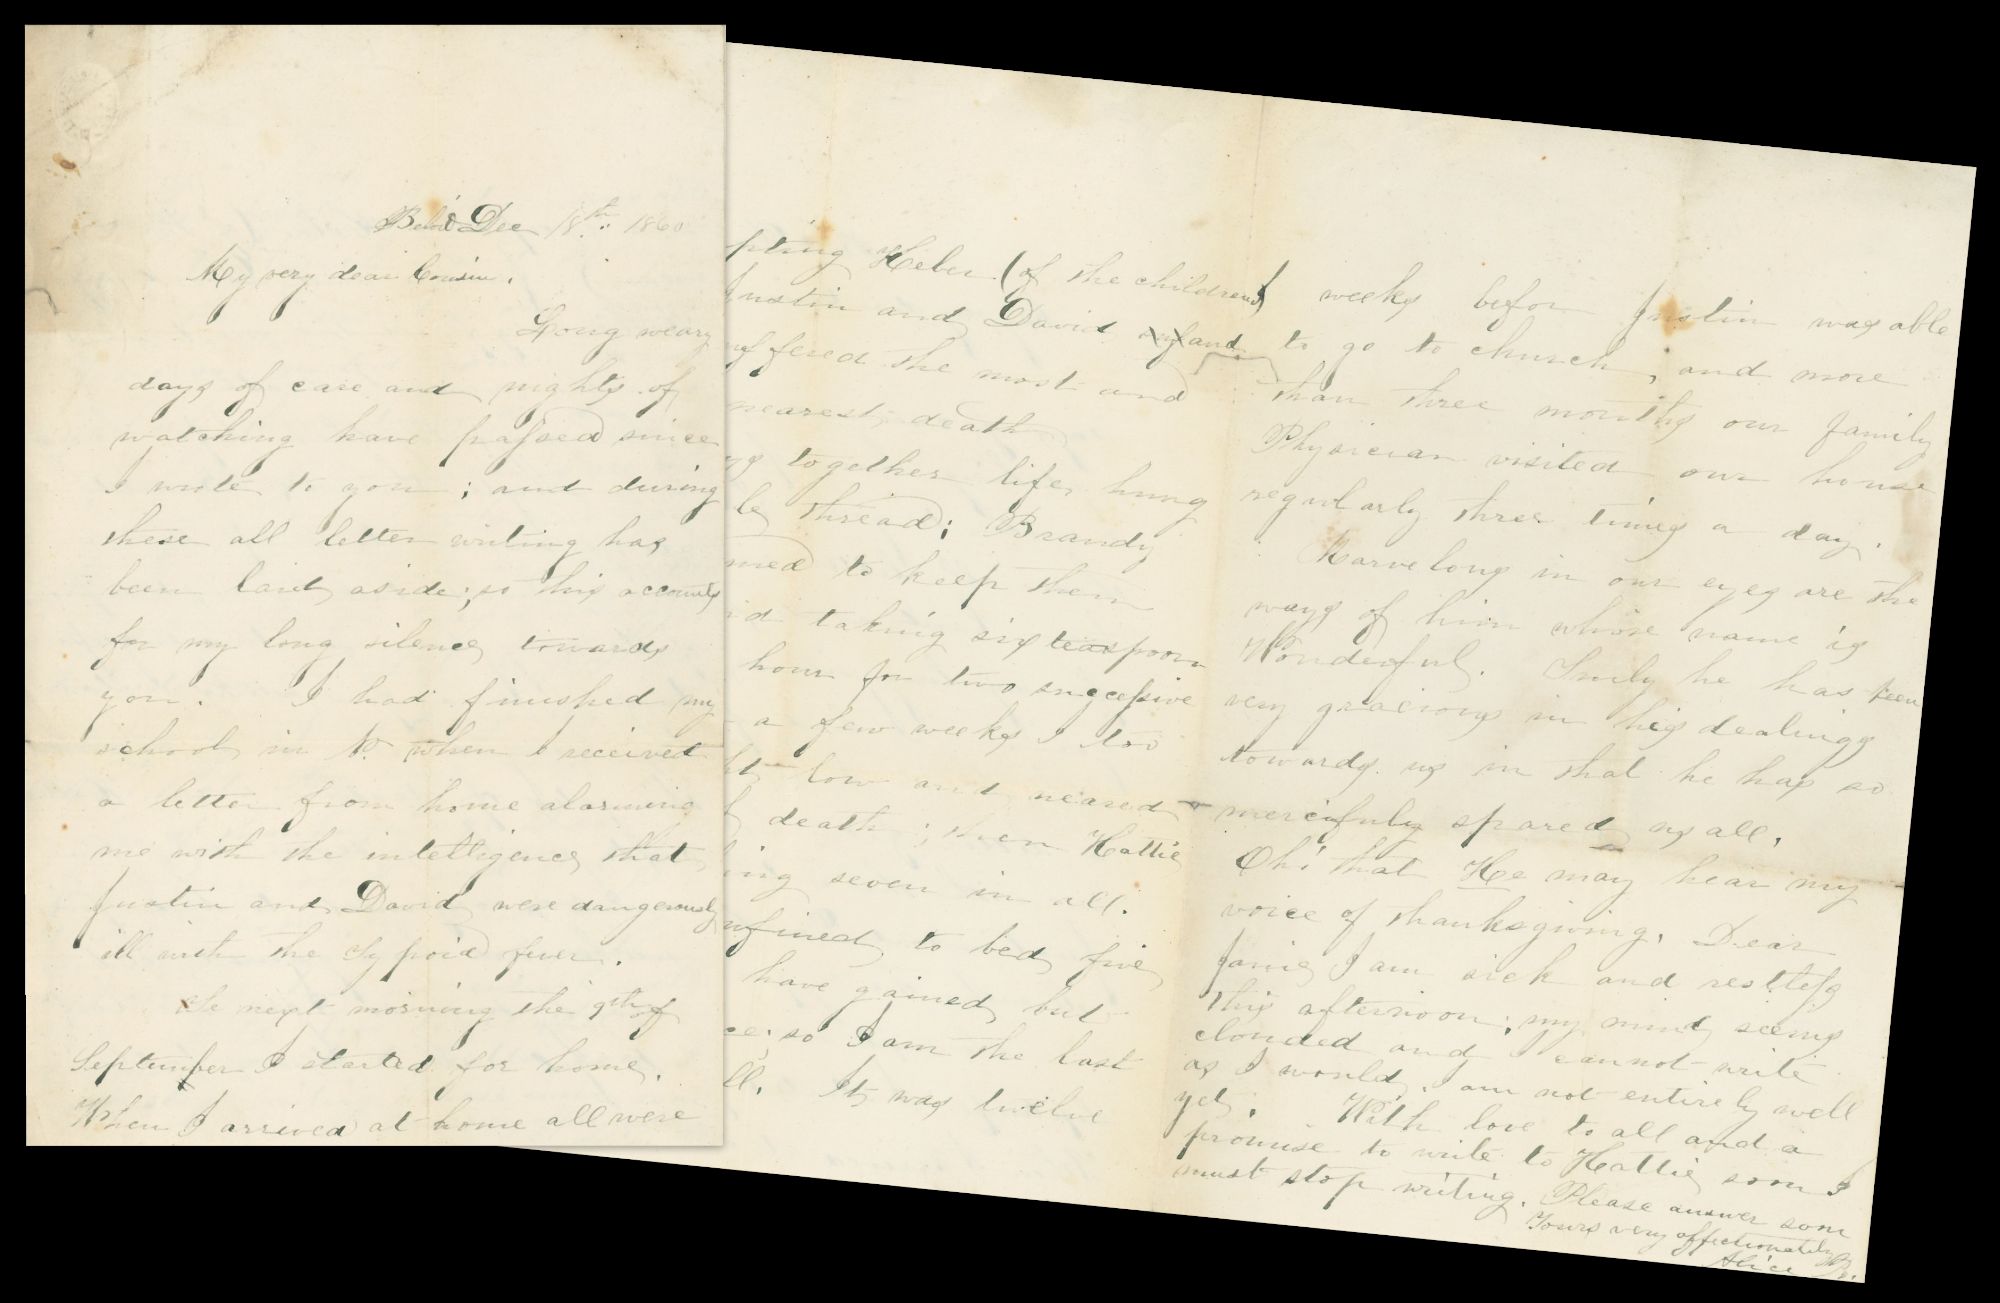 Dec 18th 1860
My very dear Cousin.
Long weary
days of care and nights of
watching have passed since
I wrote to you; and during
these all letter writing has
been laid aside; so this accounts
for my long silence towards
you. I had finished my
school in N. when I received
a letter from home alarming
me with the intelligence that
Justin and David were dangerously
ill with the typoid fever.
next morning the 9th of
September I started for home.
When I arrived at home all were
pting Heber (of the children)
Justin and David and
uffered the most and
nearest death
ys together life hung
le thread; Brandy
med to keep them
id taking six teaspoon
hour for two succesive
a few weeks I too
ht low and neared
death; then Hattie
ing seven in all.
nfined to bed five
have gained but
ce; so I am the last
ll. It was twelve
weeks before Justin was able
to go to church, and more
than three months our family
Physician visited our house
regularly three times a day.
Marvelous in our eyes are the
ways of him whose name is
Wonderful. Truly he has been
very gracious in his dealings
towards us in that he has so
mercifully spared us all.
Oh! that He may hear my
voice of thanksgiving. Dear
Janie I am sick and restless
this afternoon; my mind seems
clouded and I cannot write
as I would. I am not entirely well
yet. With love to all and a
promise to write to Hattie soon I
must stop writing. Please answer soon
Yours very affectionately
Alice